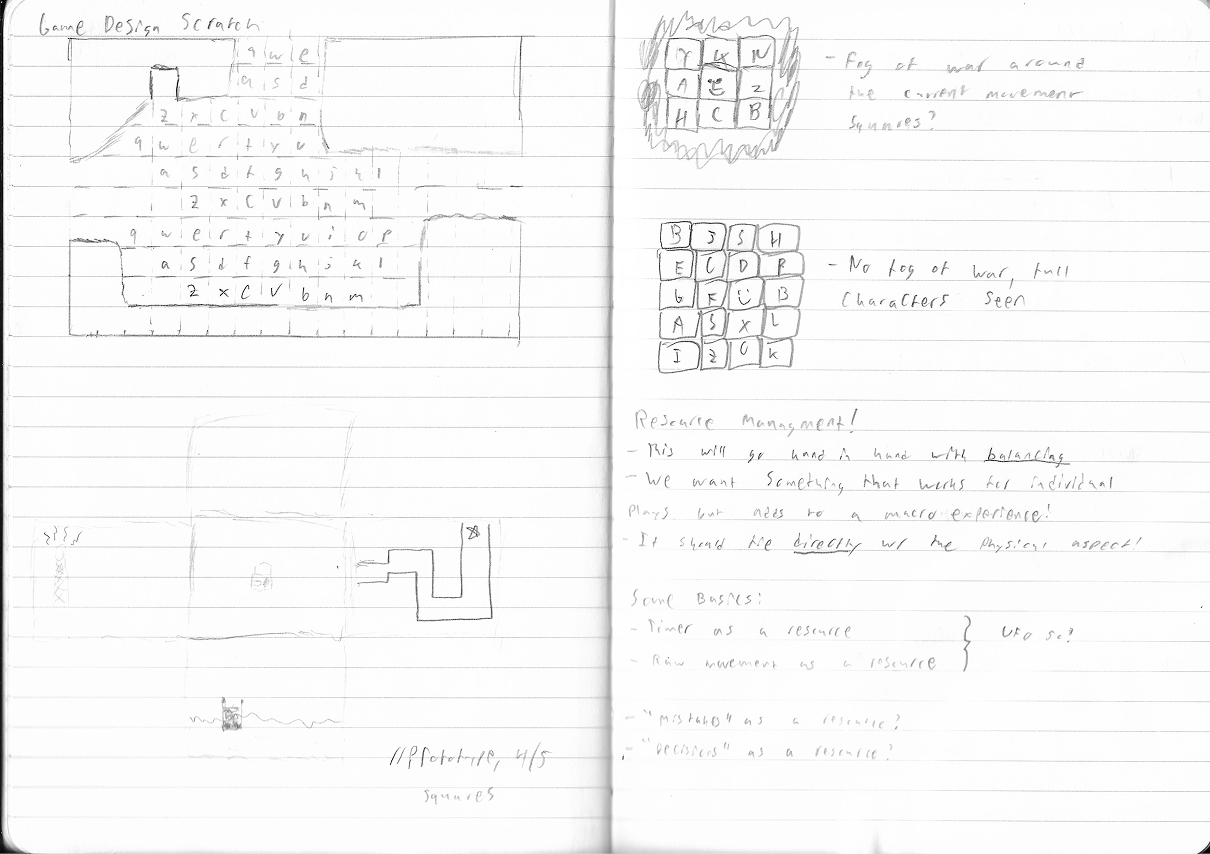 Game Design Scratch
q w e
a s d
z x c v b n
q w e r t y u
a s d f g h j k l
z x c v b n m
q w e r t y u i o p
a s d f g h j k l
z x c v b n m
//Prototype, 4/5
squares
A E Z
H C B
- Fog of war around
the current movement
squares?
B J S H
E C D R
G F B
A S X L
I Z O K
- No fog of war, full
characters seen
Resource Managment!
- This will go hand in hand with balancing
- We want something that works for individual
plays but adds to a macro experience!
- It should tie directly w/ the physical aspect!
Some Basics:
- Timer as a resource
- Raw movement as a resource
UFO 50?
- "Mistakes" as a resource?
- "Decisions" as a resource?